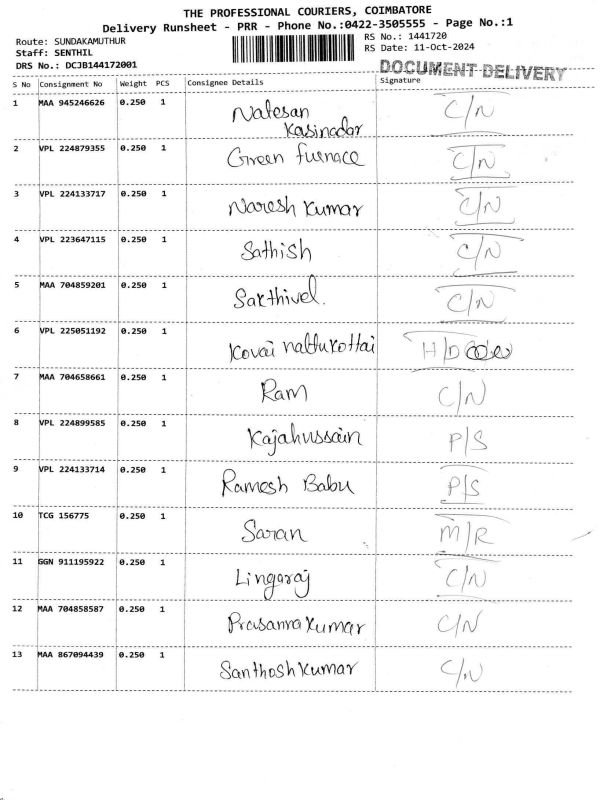 THE PROFESSIONAL COURIERS, COIMBATORE
Delivery Runsheet - PRR - Phone No.:0422-3505555 - Page No.:1
Route: SUNDAKAMUTHUR
Staff: SENTHIL
DRS No.: DCJB144172001
RS No.: 1441720
RS Date: 11-Oct-2024
DOCUMENT DELIVERY
S No Consignment No Weight PCS Consignee Details Signature
1 MAA 945246626 0.250 1 Natesan Kasinadar C/N
2 VPL 224879355 0.250 1 Green Furnace C/N
3 VPL 224133717 0.250 1 Naresh Kumar C/N
4 VPL 223647115 0.250 1 Sathish C/N
5 MAA 704859201 0.250 1 Sakthivel. C/N
6 VPL 225051192 0.250 1 Kovai Nattukottai H/D
7 MAA 704658661 0.250 1 Ram C/N
8 VPL 224899585 0.250 1 Kajahussain P/S
9 VPL 224133714 0.250 1 Ramesh Babu P/S
10 TCG 156775 0.250 1 Saran M/R
11 GGN 911195922 0.250 1 Lingaraj C/N
12 MAA 704858587 0.250 1 Prasanna Kumar C/N
13 MAA 867094439 0.250 1 Santhosh Kumar C/N